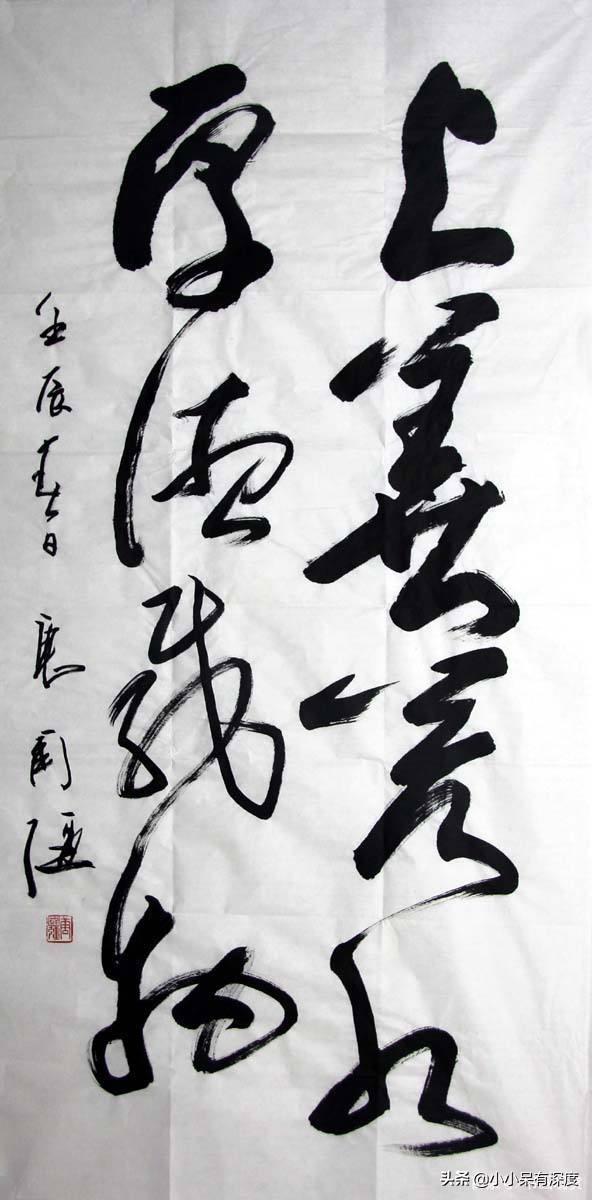 上善若水
厚德载物
壬辰春日
头条 @小小呆有深度